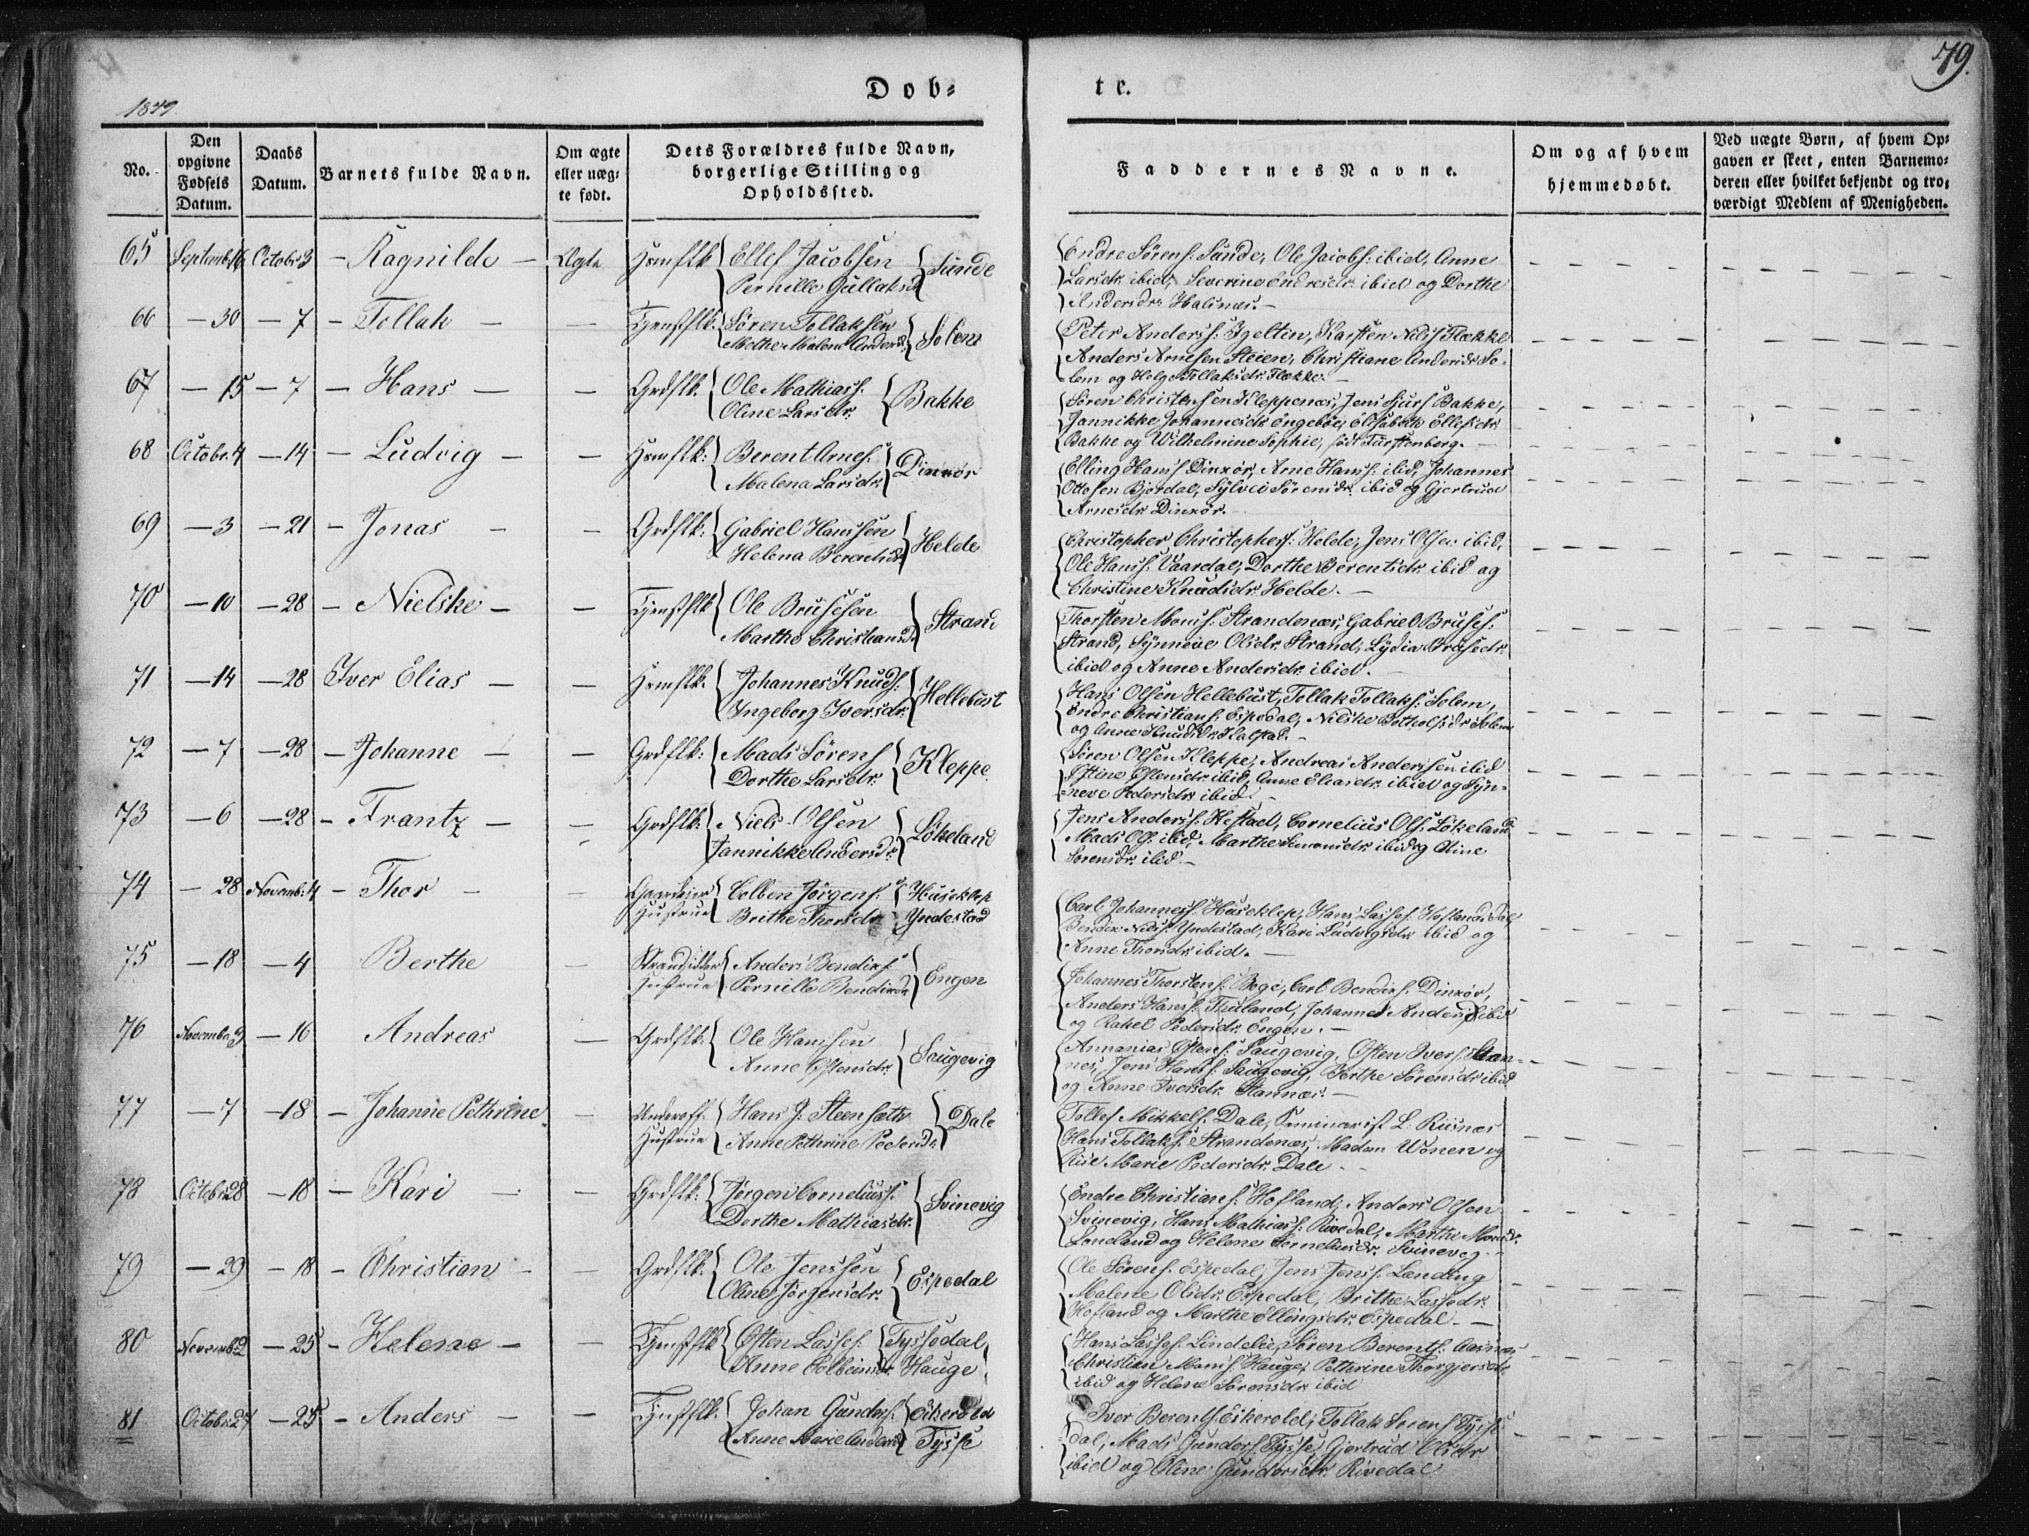 79.
Døb-
te.
1849
No.
Den opgivne Fødsels Datum.
Daabs Datum.
Barnets fulde Navn.
Om ægte eller uægte født.
Dets Forældres fulde Navn, borgerlige Stilling og Opholdssted.
Faddernes Navne.
Om og af hvem hjemmedøbt.
Ved uægte Børn, af hvem Opgaven er skeet, enten Barnemoderen eller hvilket bekjendt og troværdigt Medlem af Menigheden.
65 Septemb. 16 Octobr 3 – Ragnilde – Ægte Hsmflk Ellef Jacobsen Sunde
Pernille Gullaksd
Endre Sørens: Sunde, Ole Jacobs: ibid, Anne
Larsdr. ibid, Severine Endresdr. ibid og Dorthe
Andersdr. Halsnæs. –
66 – 30 – 7 – Tollak – – Tjenstflk: Søren Tollaksen Solem
Methe Malene Andersd.
Peter Anders: Igeltin, Karsten Nilss Flekke
Anders Arnesen Steien, Christiane Andersdr. So-
lem og Helge Tollaksdr. Flekke. –
67 – 15 – 7 – Hans – – Grdflk: Ole Mathiass: Bakke
Oline Larsdr.
Søren Christensen Kleppenæs, Jens Sjurs Bakke,
Jannikke Johannesdr. Engebøe, Elisabeth Ellefsdr.
Bakke og Wilhelmine Sophie, født Fürstenberg. –
68 Octobr. 4 – 14 – Ludvig – – Hsmflk: Berent Arnes: Dinxør
Malena Larsdr.
Elling Hanss Dinxør, Arne Hanss: ibid, Johannes
Ottesen Bjordal, Sylvei Sørensdr. ibid og Gjertrud
Arnesdr. Dinxør.
69 – 3 – 21 – Jonas – – Grdflk: Gabriel Hanssen Helde
Helena Berentsdr.
Christopher Christophers: Helde, Jens Olsen ibid,
Ole Hanss: Vaardal, Dorthe Berentsdr. ibid og
Christine Knudsdr. Helde. –
70 – 10 – 28 – Nielske – – Tjenstflk Ole Brusesen Strand
Marthe Christiansd
Thorsten Mons: Strandenæs, Gabriel Bruses:
Strand, Synneve Olsdr. Strand, Lydia Brusedr.
ibid og Anne Andersdr. ibid. –
71 – 14 – 28 Iver Elias – – Hsmflk. Johannes Knuds: Hellebust
Ingeborg Iversdr.
Hans Olsen Hellebust, Tollak Tollaks: Solem,
Endre Christians: Espedal, Nilske Botholfsdr. Solem
og Anne Knudsdr.
72 – 7 – 28 – Johanne – – Grdflk: Mads Sørens Kleppe.
Dorthe Larsdr.
Søren Olsen Kleppe, Andreas Anderssen ibid
Ostine Ostensdr. ibid, Anne Eliasdr. ibid og Syn-
neve Pedersdr. ibid. –
73 – 6 – 28 – Frantz – – Grdflk: Niels Olsen Løkeland
Jannikke Andersdr.
Jens Anders: Hestad, Cornelius Ols: Løkeland
Mads Ols: ibid, Marthe Simonsdr. ibid og Oline
Sørensdr. ibid. –
74 – 28 Novemb: 4 – Thor – – Gaardeier Colben Jørgens: Huseklep
Hustrue Brithe Thorsdr Yndestad
Carl Johanness: Huseklep, Hans Lasses: Hoflandsdal
Bendix Nilss Yndestad, Kari Ludvigsdr. ibid og
Anne Thorsdr. ibid. –
75 – 18 – 4 Berthe – Strandsidder Anders Bendixs: Engen
Hustrue Pernille Bendixdr
Johannes Thorstens: Bøge, Carl Bendixs: Dinxør,
Anders Hanss: Thuland, Johannes Anders: ibid
og Rakel Pedersdr. Engen. –
76 Novembr 3 – 16 Andreas – Grdflk: Ole Hanssen Saugevig
Anne Ostensdr.
Annanias Ostens: Saugevig, Osten Ivers: Stan-
næs, Jens Hanss: Saugevig, Berthe Sørensdr. ibid
og Anne Iversdr. Stannæs. –
77 – 7 – 18 – Johanne Pethrine. – Underoff. Hans J. Steensæth Dale
Hustrue Anne Pethrine Pedersdr.
Tollef Mikkels: Dale, Seminarist L. Riisnæs
Hans Tollaks: Strandenæs, Madam Wonen og
Marie Pedersdr. Dale –
78 Octobr 28 – 18 – Kari – – Grdflk: Jørgen Cornelius: Svinevig
Dorthe Mathiasdr.
Endre Christians: Hofland, Anders Olsen
Svinevig, Hans Mathiass: Rivedal, Marthe Monsdr.
Loneland og Helene Corneliusdr. Svinevig. –
79 – 29 – 18 – Christian – – Grdflk: Ole Jenssen Espedal
Oline Jørgensdr.
Ole Sørens: Espedal, Jens Jens: Lending
Malene Olsdr. Espedal, Brithe Lassedr.
Hofland og Marthe Ellingsdr. Espedal –
80 Novemb. 2 – 25 – Helene – – Tjenstflk Osten Lasses: Tyssedal,
Anne Colbeinsdr. Hauge
Hans Lasses: Lindelie, Søren Berents: Aasnæs
Christian Mons: Hauge, Pethrine Thorgjersdr
ibid og Helene Sørensdr. ibid
81 Octobr. 27 – 25 – Anders – – Tjenstflk: Johan Gunders: Eikerold
Anne Marie Andersd Tysse
Iver Berents: Eikerold, Tollak Sørens Tysse
dal, Mads Gunders: Tysse, Gjertrud Olsdr
ibid og Oline Gundersdr. Rivedal